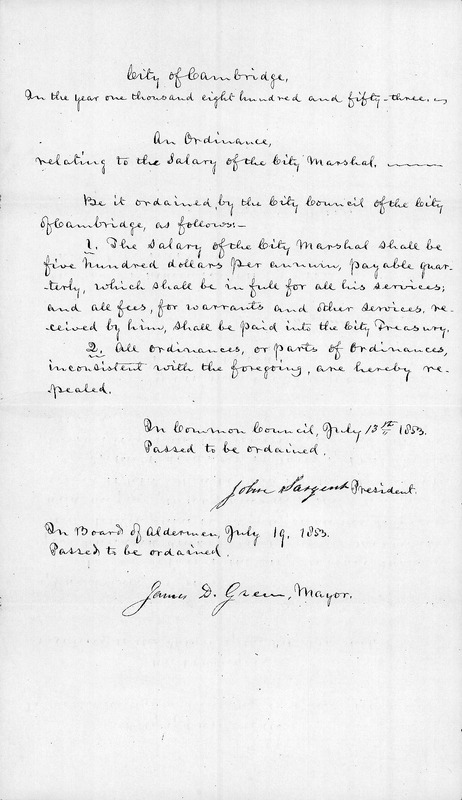 City of Cambridge,
In the year one thousand eight hundred and fifty-three.
An Ordinance,
relating to the Salary of the City Marshal. ——
Be it ordained by the City Council of the City
of Cambridge, as follows:-
1. The Salary of the City Marshal shall be
five hundred dollars per annum, payable quar-
terly, which shall be in full for all his services;
and all fees, for warrants and other services, re-
ceived by him, shall be paid into the City Treasury.
2. All ordinances, or parts of ordinances,
inconsistent with the foregoing, are hereby re-
pealed.
In Common Council, July 13th 1853.
Passed to be ordained.
John Sargent President.
In Board of Aldermen, July 19, 1853.
Passed to be ordained.
James D. Green, Mayor.